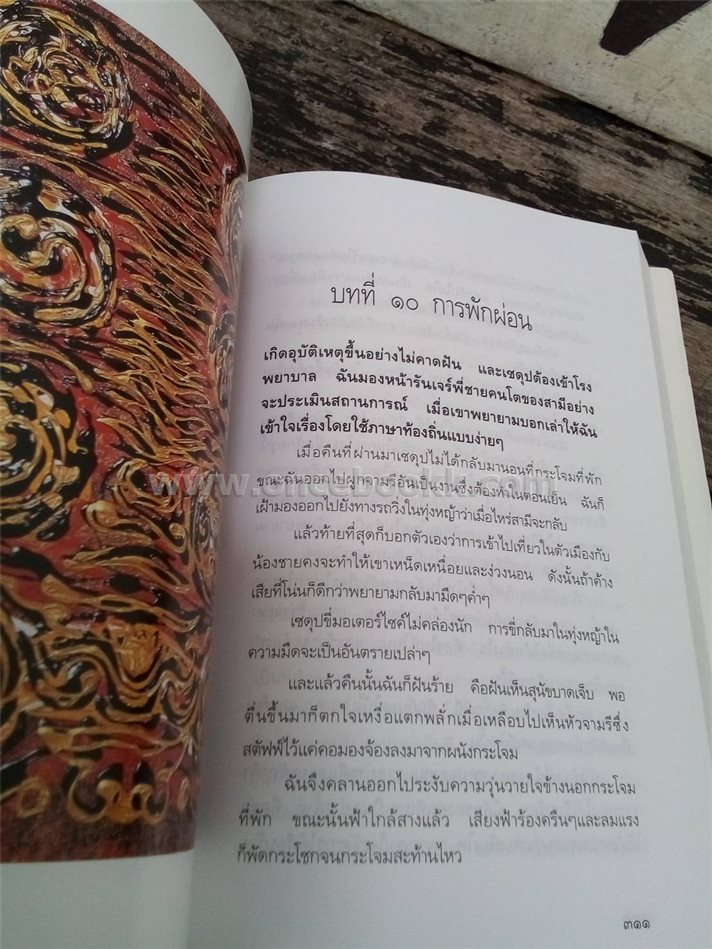 บทที่ ๑๐ การพักผ่อน
เกิดอุบัติเหตุขึ้นอย่างไม่คาดฝัน และเซดุปต้องเข้าโรง
พยาบาล ฉันมองหน้ารันเจร์พี่ชายคนโตของสามีอย่าง
จะประเมินสถานการณ์ เมื่อเขาพยายามบอกเล่าให้ฉัน
เข้าใจเรื่องโดยใช้ภาษาท้องถิ่นแบบง่ายๆ
เมื่อคืนที่ผ่านมาเซดุปไม่ได้กลับมานอนที่กระโจมที่พัก
ขณะฉันออกไปผูกจามรีอันเป็นงานซึ่งต้องทำในตอนเย็น ฉันก็
เฝ้ามองออกไปยังทางรถวิ่งในทุ่งหญ้าว่าเมื่อไหร่สามีจะกลับ
แล้วท้ายที่สุดก็บอกตัวเองว่าการเข้าไปเที่ยวในตัวเมืองกับ
น้องชายคงจะทำให้เขาเหน็ดเหนื่อยและง่วงนอน ดังนั้นถ้าค้าง
เสียที่โน่นก็ดีกว่าพยายามกลับมามืดๆค่ำๆ
เซดุปขี่มอเตอร์ไซค์ไม่คล่องนัก การขี่กลับมาในทุ่งหญ้าใน
ความมืดจะเป็นอันตรายเปล่าๆ
และแล้วคืนนั้นฉันก็ฝันร้าย คือฝันเห็นสุนัขบาดเจ็บ พอ
ตื่นขึ้นมาก็ตกใจเหงื่อแตกพลั่กเมื่อเหลือบไปเห็นหัวจามรีซึ่ง
สตัฟฟ์ไว้แค่คอมองจ้องลงมาจากผนังกระโจม
ฉันจึงคลานออกไประงับความวุ่นวายใจข้างนอกกระโจม
ที่พัก ขณะนั้นฟ้าใกล้สางแล้ว เสียงฟ้าร้องครืนๆและลมแรง
ก็พัดกระโชกจนกระโจมสะท้านไหว
๓๑๑